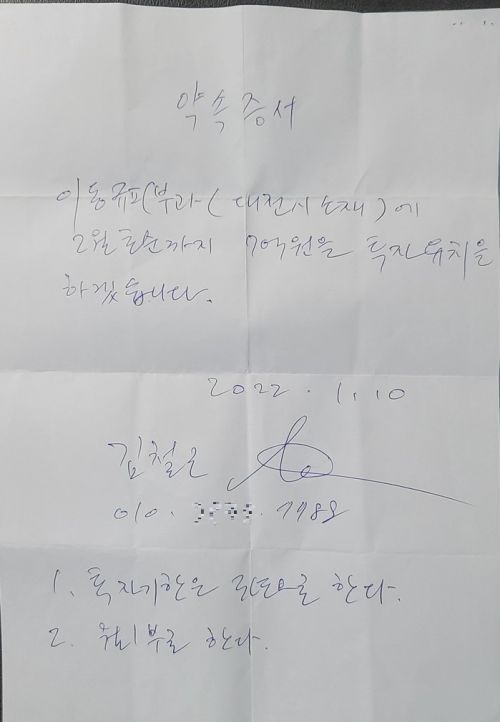 약속증서
이동규피부과(대전시소재)에
2월초순까지 7억원을 투자유치를
하겠습니다.
2022. 1. 10
김철근
010. 7788
1. 투자기한은 으로 한다.
2. 한다.